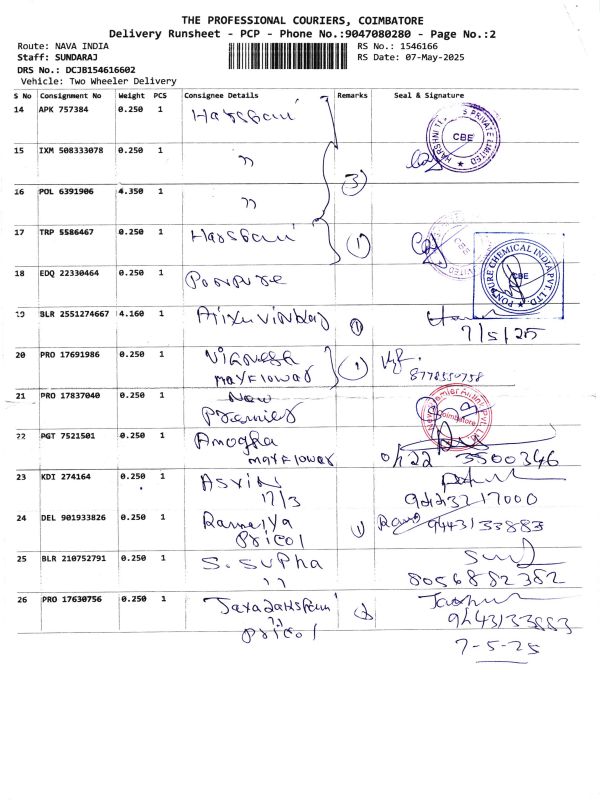 THE PROFESSIONAL COURIERS, COIMBATORE
Delivery Runsheet - PCP - Phone No.:9047080280 - Page No.:2
Route: NAVA INDIA
RS No.: 1546166
Staff: SUNDARAJ
RS Date: 07-May-2025
DRS No.: DCJB154616602
Vehicle: Two Wheeler Delivery
S No Consignment No Weight PCS Consignee Details Remarks Seal & Signature
14 APK 757384 0.250 1
HARSHNI PRIVATE LIMITED CBE
15 IXM 508333078 0.250 1 ))
3
16 POL 6391906 4.350 1 ))
17 TRP 5586467 0.250 1 1
CBE
18 EDQ 22330464 0.250 1 Ponpure
PONPURE CHEMICAL INDIA PVT. LTD. CBE
19 BLR 2551274667 4.160 1 1
7/5/25
20 PRO 17691986 0.250 1 Vignesh 1
mayflower 8778550758
21 PRO 17837040 0.250 1 New
Premier
Coimbatore
22 PGT 7521501 0.250 1 Amogha
mayflower 0422 3500346
23 KDI 274164 0.250 1 Asvin
17/3 9442317000
24 DEL 901933826 0.250 1 Rameiya 1 9443133883
Pricol
25 BLR 210752791 0.250 1 S. Supha
)) 8056882382
26 PRO 17630756 0.250 1
)) 9443133883
Pricol
7-5-25